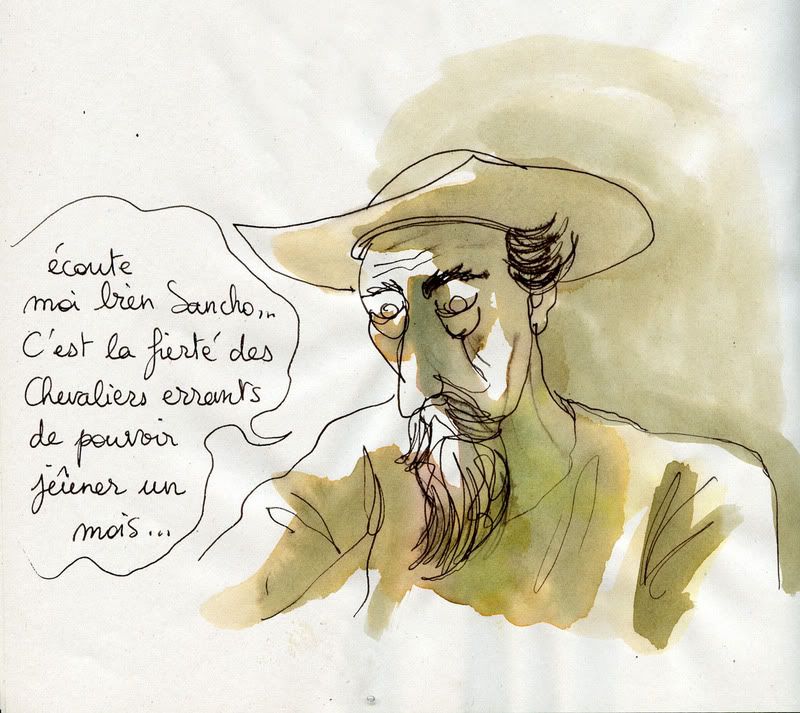 écoute
moi bien Sancho...
C'est la fierté des
Chevaliers errants
de pouvoir
jeûner un
mois...